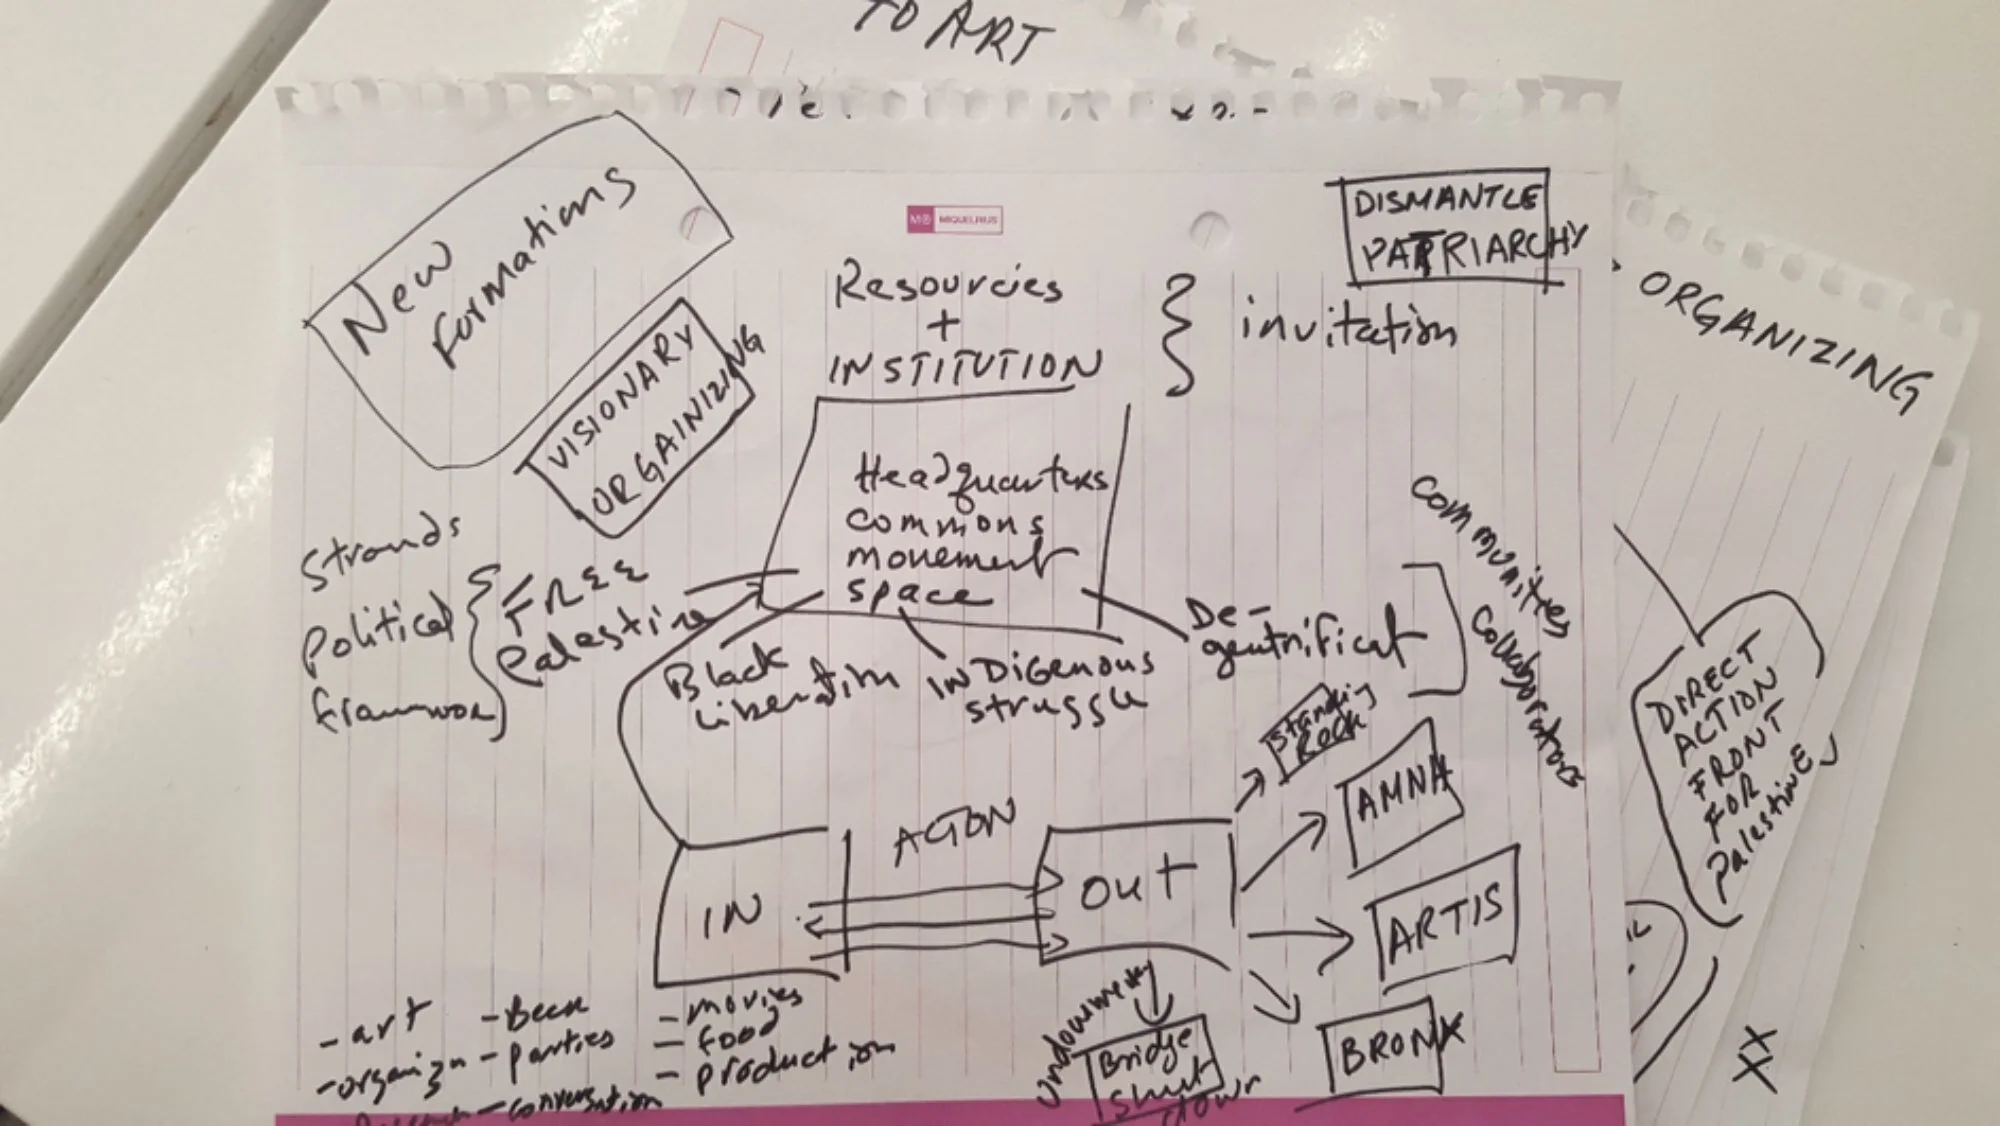 TO ART
New
Formations
VISIONARY
ORGAINIZING
M®
MIQUELRIUS
Resourcies
+
INSTITUTION
invitation
DISMANTLE
PATRIARCHY
ORGANIZING
Headquarters
commons
movement
space
Strands
Political
FREE
Palestine
Black
Liberation
INDigenous
struggle
De-
gentrificat
communities
collaborators
Standing
Rock
AMNA
ARTIS
BRONX
IN
OUT
DIRECT
ACTION
FRONT
FOR
Palestine
- art
- organiz
- Beer
- parties
- conversation
- movies
- food
- production
Bridge
Shut
down